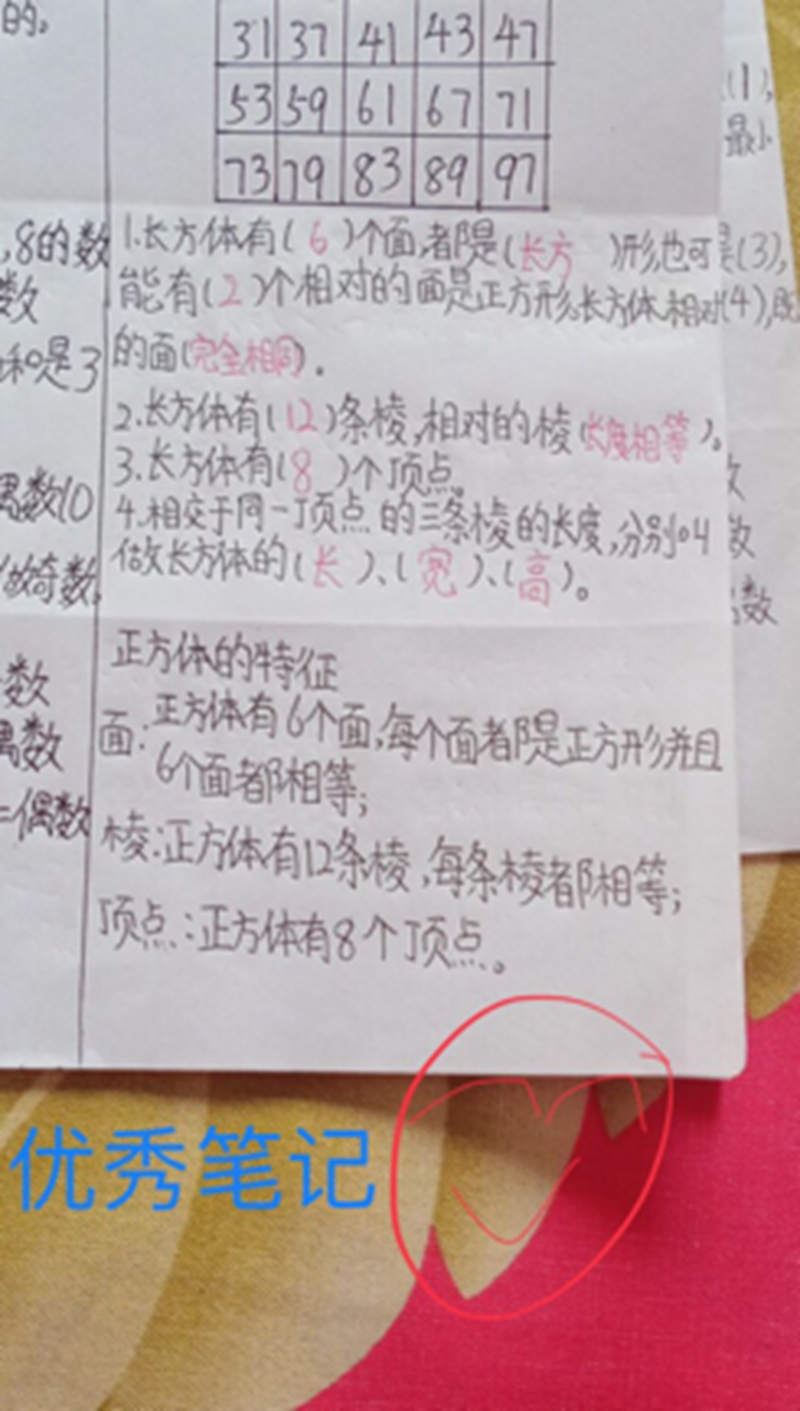 的。
31 37 41 43 47
53 59 61 67 71
73 79 83 89 97
(1),
最小
,8的数
数
和是3
偶数10
做奇数,
数
偶数
=偶数
1.长方体有(6)个面,都是(长方 )形,也可
能有(2)个相对的面是正方形,长方体相对
的面(完全相同)。
2.长方体有(12)条棱,相对的棱(长度相等)。
3.长方体有(8)个顶点。
4.相交于同一顶点的三条棱的长度,分别叫
做长方体的(长)、(宽)、(高)。
正方体的特征
面:正方体有6个面,每个面都是正方形并且
6个面都相等;
棱:正方体有12条棱,每条棱都相等;
顶点:正方体有8个顶点。
是(3),
(4),既
数
数
数
优秀笔记